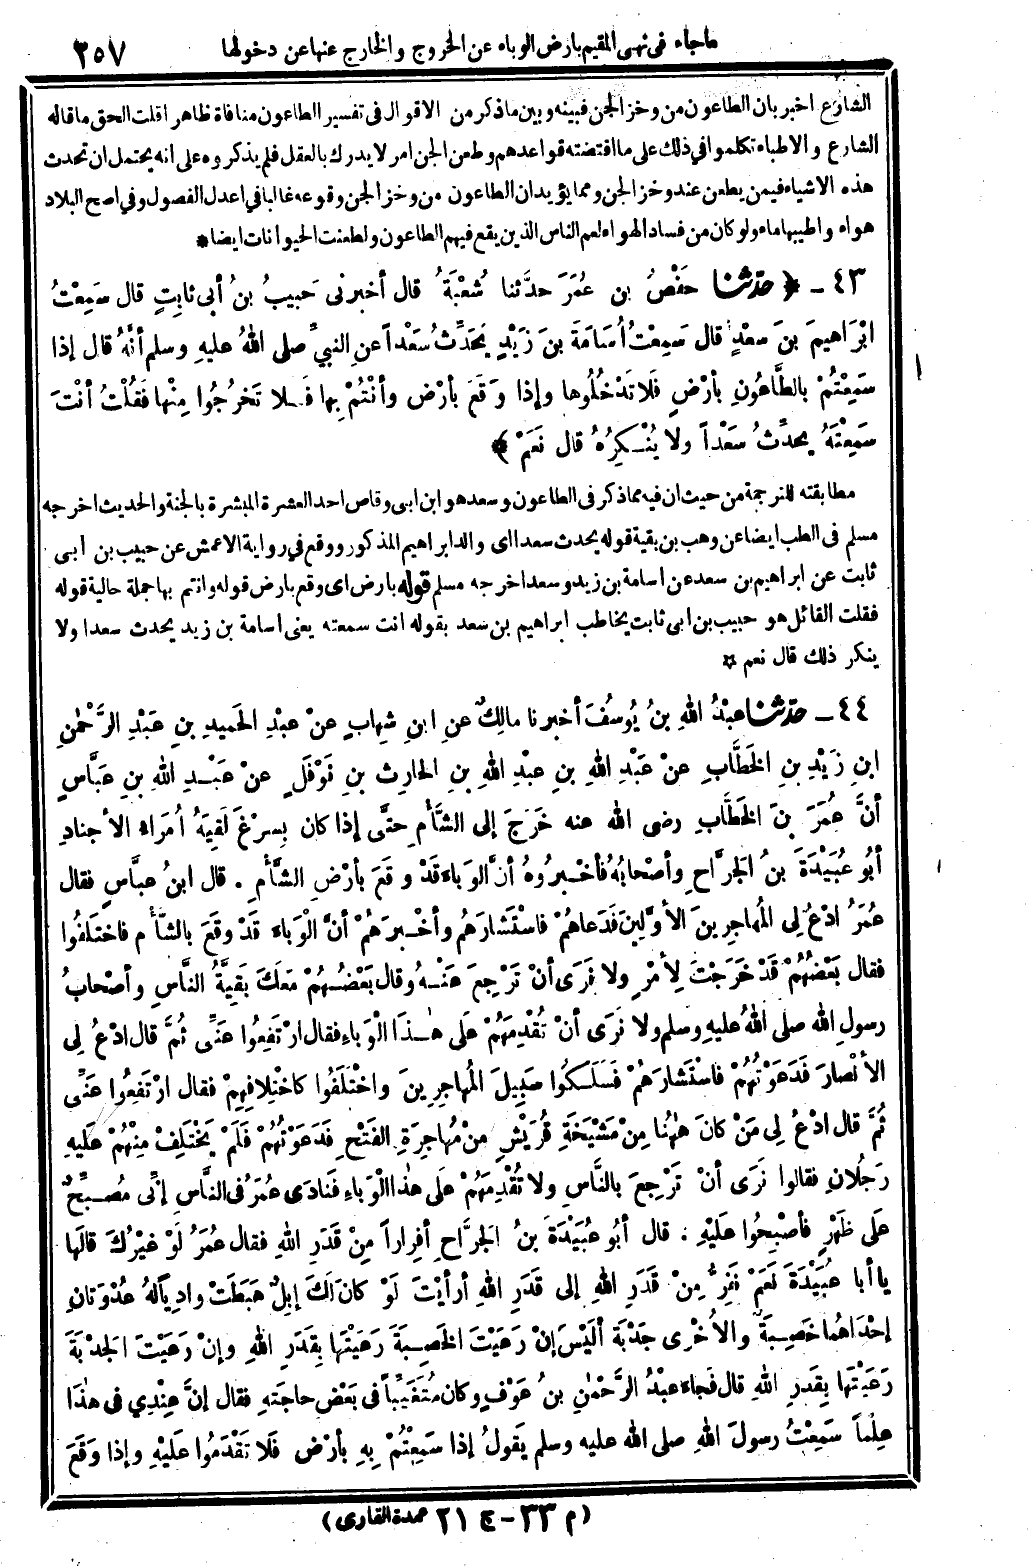 ماجاء في نهى المقيم بارض الوباء عن الخروج والخارج عنها عن دخولها ٢٥٧
الشارع اخبر بان الطاعون من وخز الجن فبينه وبين ماذكر من الاقوال في تفسير الطاعون منافاة ظاهرا قلت الحق ماقاله
الشارع والاطباء تكلموا في ذلك على ما اقتضته قواعدهم وطعن الجن امر لا يدرك بالعقل فلم يذكروه على انه يحتمل ان تحدث
هذه الاشياء فيمن يطعن عند وخز الجن ومما يؤيد ان الطاعون من وخز الجن وقوعه غالبا في اعدل الفصول وفي اصح البلاد
هواء واطيبها ماء ولو كان من فساد الهواء لعم الناس الذين يقع فيهم الطاعون ولطعنت الحيوانات ايضا *
٤٣ - ﴿ حدثنا حَفْصُ بن عُمَرَ حدَّثنا شُعْبَةُ قال أخبرني حَبيبُ بنُ أبي ثابِتٍ قال سَمِعْتُ
ابْرَاهِيمَ بنَ سعْدٍ قال سَمِعْتُ أُسَامَةَ بنَ زَيْدٍ يُحَدِّثُ سَعْداً عنِ النبيِّ صلى اللهُ عليهِ وسلم أنَّهُ قال إذا
سَمِعْتُمْ بالطَّاعُونِ بأرْضٍ فَلَا تَدْخُلُوها وإذا وَقَعَ بأرْضٍ وأنْتُمْ بِها فَـلا تَخرُجُوا مِنْها فَقُلْتُ أنْتَ
سَمِعْتَهُ يحدِّثُ سَعْداً ولا يُنْـكِرُهُ قال نَعَمْ ﴾
مطابقته للترجمة من حيث ان فيه مما ذكر في الطاعون وسعد هو ابن ابي وقاص احد العشرة المبشرة بالجنة والحديث اخرجه
مسلم في الطب ايضا عن وهب بن بقية قوله يحدث سعدا اي والد ابراهيم المذكور ووقع في رواية الاعمش عن حبيب بن ابي
ثابت عن ابراهيم بن سعد عن اسامة بن زيد وسعد اخرجه مسلم قوله بارض اى وقع بارض قوله وانتم بها جملة حالية قوله
فقلت القائل هو حبيب بن ابى ثابت يخاطب ابراهيم بن سعد بقوله انت سمعته يعنى اسامة بن زيد يحدث سعدا ولا
ينكر ذلك قال نعم ☆
٤٤ - حدثنا عبْدُ اللهِ بنُ يُوسُفَ أخبرنا مالِكٌ عنِ ابنِ شِهابٍ عنْ عبْدِ الحَميدِ بنِ عَبْدِ الرَّحْمٰنِ
ابنِ زَيْدِ بنِ الخَطَّابِ عنْ عَبْدِ اللهِ بنِ عبْدِ اللهِ بنِ الحارِثِ بنِ نَوْفَلٍ عنْ عَبْـدِ اللهِ بنِ عَبَّاسٍ
أنَّ عُمَرَ بنَ الخَطَّابِ رضى الله عنه خَرَجَ إلى الشَّأْمِ حتَّى إذا كان بِسرْغَ لَقِيَهُ أُمَرَاءُ الأجْنادِ
أبُو عُبَيْدَةَ بنُ الجَرَّاحِ وأصْحابُهُ فأخْـبرُوهُ أنَّ الوَباءَ قَدْ وقَعَ بأرْضِ الشَّأْمِ . قال ابنُ عبَّاسٍ فقال
عُمَرُ ادْعُ لِى المُهاجِرِينَ الأوَّلِينَ فَدَعاهُمْ فاسْتَشارَهُم وأخْـبرَهُمْ أنَّ الْوَباءَ قَدْ وقَعَ بالشَّأْمِ فاختَلَفُوا
فقال بَعْضُهُمْ قَدْ خَرَجْتَ لِأمْرٍ ولا نَرَى أنْ تَرْجِعَ عَنْـهُ وقال بَعْضُـهُمْ مَعَكَ بَقِيَّةُ النَّاسِ وأصْحابُ
رسولِ اللهِ صلى اللهُ عليهِ وسلم ولا نَرَى أنْ تُقْدِمَهُمْ عَلَى هٰـذا الْوَباءِ فقال ارْتَفِعُوا عَنِّى ثُمَّ قال ادْعُ لِى
الأنْصارَ فَدَعَوْتُهُمْ فاسْتَشارَهُمْ فَسَلَـكُوا سَبِيلَ المُهاجِرِينَ واخْتَلَفُوا كاخْتِلافِهِمْ فقال ارْتَفِعُوا عَنِّى
ثُمَّ قال ادْعُ لِى مَنْ كانَ هٰهُنا مِنْ مَشْيَخَةِ قُرَيْشٍ مِنْ مُهاجِرَةِ الفَتْحِ فَدَعَوْتُهُمْ فَلَمْ يَخْتَلِفْ مِنْهُمْ عليهِ
رَجُلانِ فقالوا نَرَى أنْ تَرْجِعَ بالنَّاسِ ولا تُقْدِمَهُمْ عَلَى هٰذا الوَباءِ فَنادَى عُمَرُ فى النَّاسِ إنِّى مُصَـبِّحٌ
عَلَى ظَهْرٍ فأصْبِحُوا عَلَيْهِ . قال أبُو عُبَيْدَةَ بنُ الجَرَّاحِ أفِراراً مِنْ قَدَرِ اللهِ فقال عُمَرُ لَوْ غيْرُكَ قالَها
يا أبا عُبَيْدَةَ نَعَمْ نَفِرُّ مِنْ قَدَرِ اللهِ إلى قَدَرِ اللهِ أرأيْتَ لَوْ كانَ لَكَ إبِلٌ هَبَطَتْ وادِياً لهُ عُدْوَتانِ
إحْدَاهُما خَصِبةٌ والأُخْرى جَدْبَة ألَيْسَ إنْ رَعَيْتَ الخَصِـبَةَ رَعَيْتَها بِقَدَرِ اللهِ وإنْ رَعَيْتَ الجَدْبَةَ
رَعَيْتَها بِقَدَرِ اللهِ قال فَجاءَ عبْدُ الرَّحْمٰنِ بنُ عَوْفٍ وكان مُتَغَيِّباً فى بَعْضِ حاجَتِهِ فقال إنَّ عِنْدِي فى هٰذا
عِلْماً سَمِعْتُ رسولَ اللهِ صلى الله عليه وسلم يَقولُ إذا سَمِعْتُمْ بِهِ بأرْضٍ فَلَا تَقْدَمُوا عَلَيْهِ وإذا وَقَعَ
(م ٣٣ - ج ٢١ عمدة القارى)